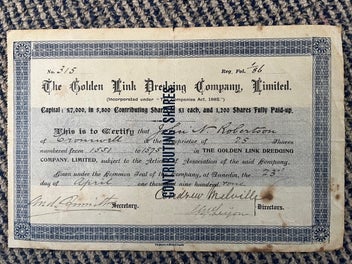 No. 315 Reg. Fol. 86
The Golden Link Dredging Company, Limited.
(Incorporated under "The Companies Act, 1882.")
Capital: £7,000, in 5,800 Contributing Shares of £1 each, and 1,200 Shares Fully Paid-up.
This is to Certify that John N. Robertson
of Cromwell is the Proprietor of 25 Shares
numbered from 1551 to 1575 in THE GOLDEN LINK DREDGING
COMPANY, LIMITED, subject to the Articles of Association of the said Company.
Given under the Common Seal of the said Company, at Dunedin, the 23
day of April one thousand nine hundred
Andrew Melville
Secretary. Directors.
CONTRIBUTING SHARES